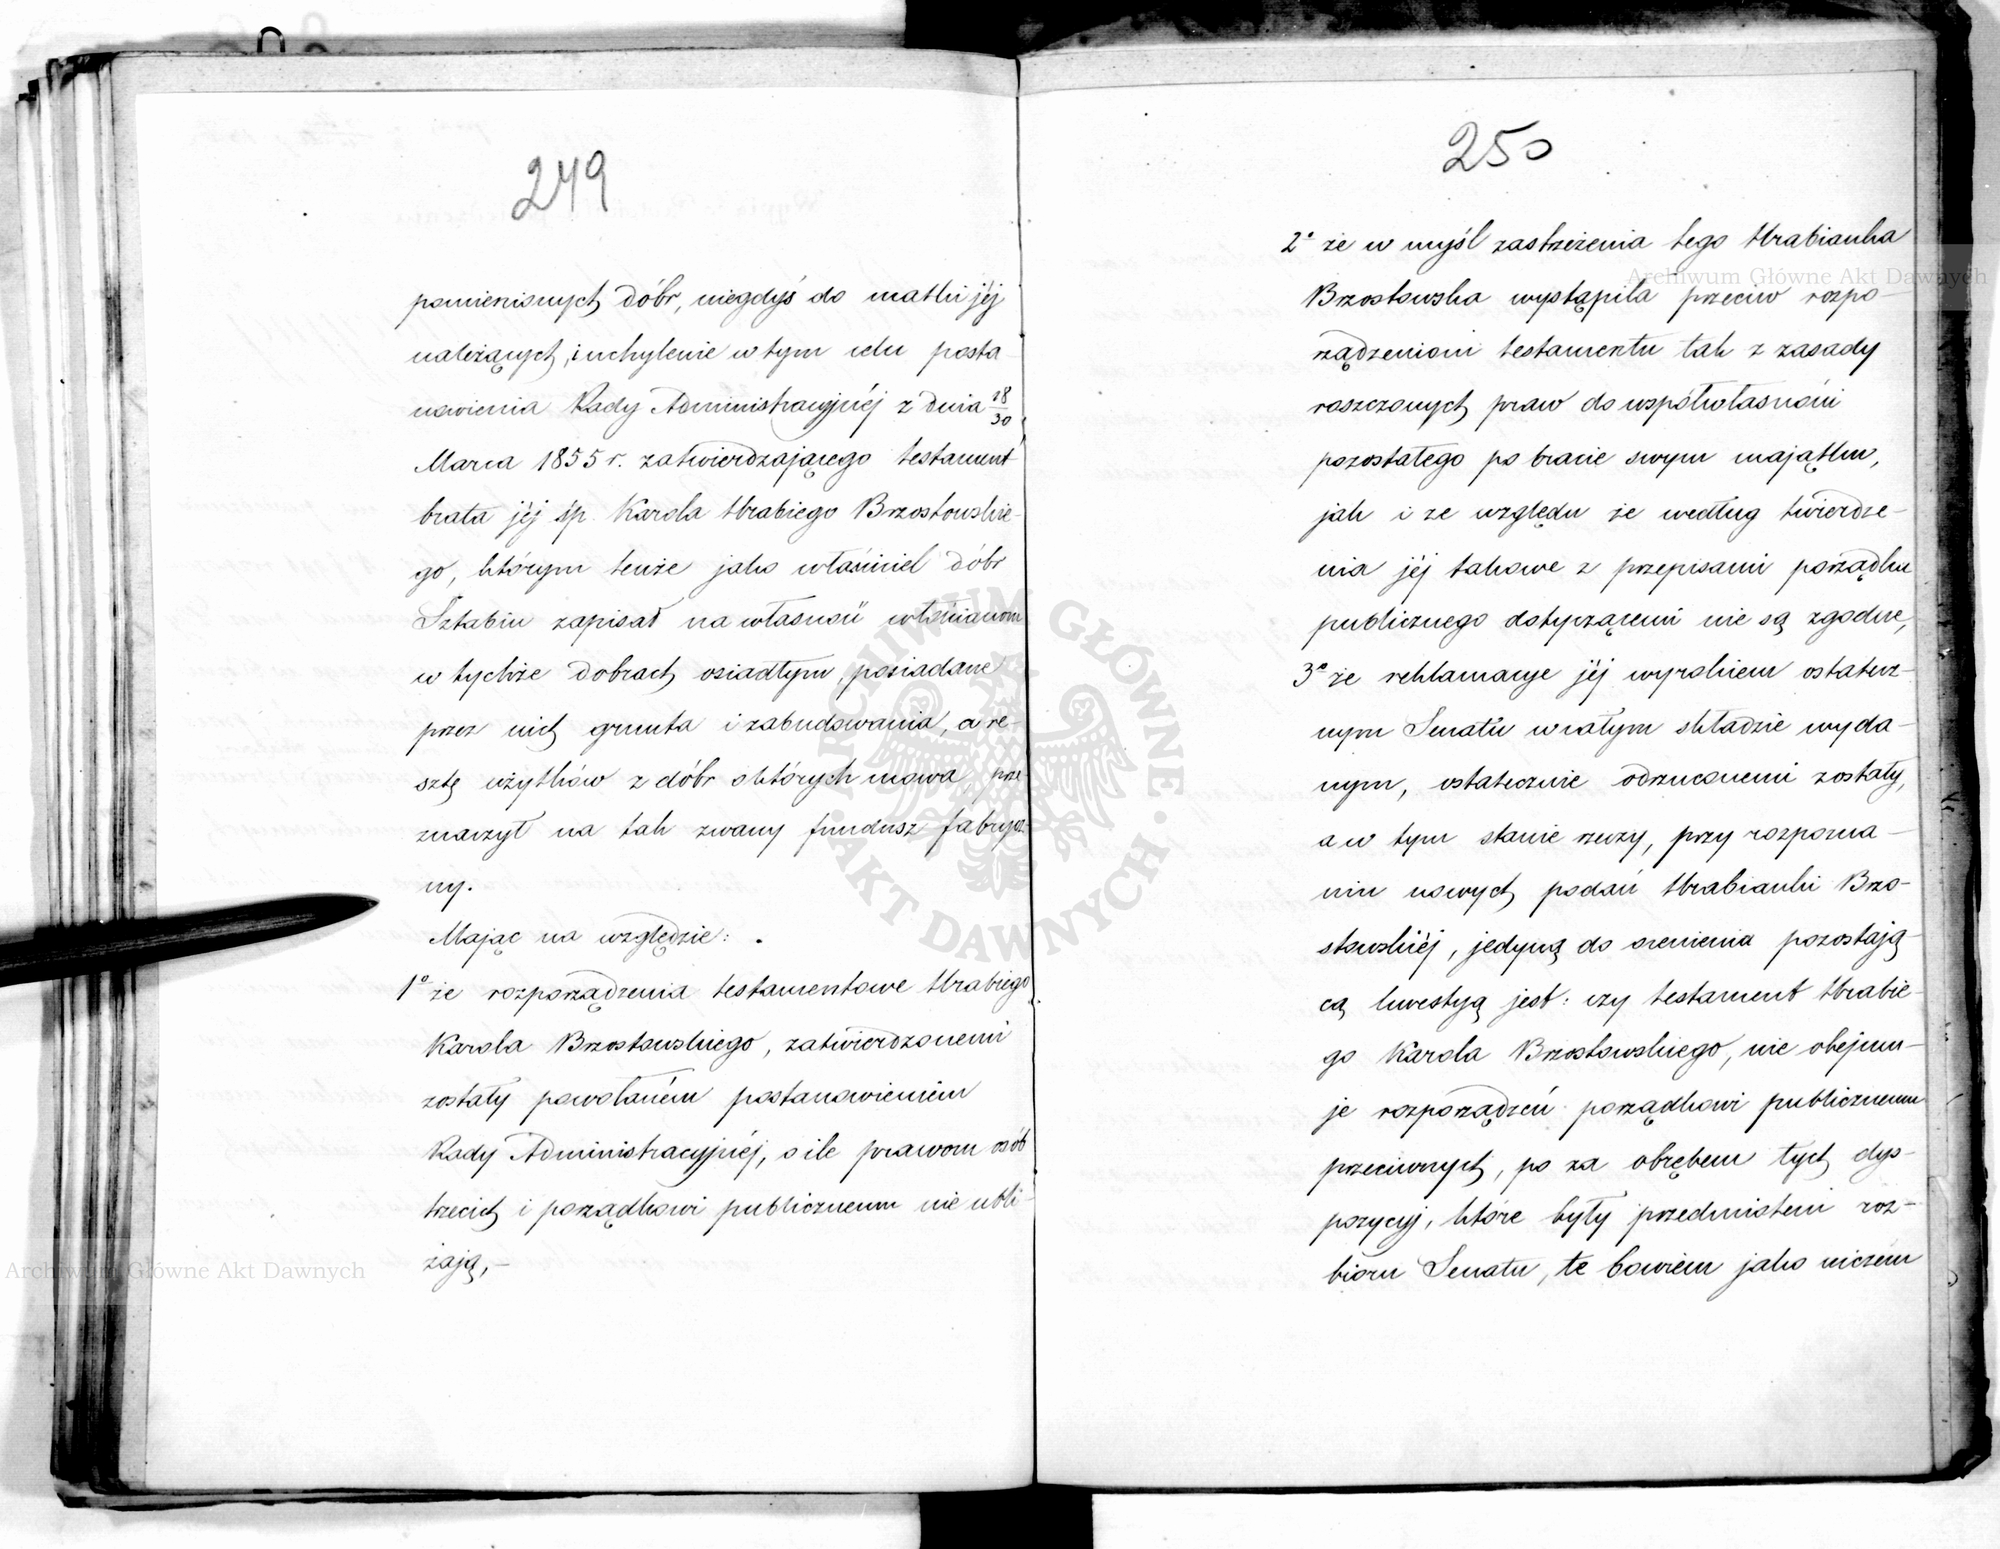 249
pomienionych dóbr, niegdyś do matki jéj
należących, i uchylenie w tym celu posta
nowienia Rady Administracyjnéj z dnia 18/30
Marca 1855 r. zatwierdzającego testament
brata jéj śp. Karola Hrabiego Brzostowskie-
go, którym tenże jako właściciel dóbr
Sztabin zapisał na własność włościanom
w tychże dobrach osiadłym, posiadane
przez nich grunta i zabudowania, a re-
sztę użytków z dóbr o których mowa, prze-
znaczył na tak zwany fundusz fabrycz-
ny.
Mając na względzie:
1° że rozporządzenia testamentowe Hrabiego
Karola Brzostowskiego, zatwierdzonemi
zostały powołaném postanowieniem
Rady Administracyjnéj, o ile prawom osób
trzecich i porządkowi publicznemu nie ubli-
żają,-
250
2° że w myśl zastrzeżenia tego Hrabianka
Brzostowska wystąpiła przeciw rozpo-
rządzeniom testamentu tak z zasady
roszczonych praw do współwłasności
pozostałego po bracie swym majątku,
jak i ze względu że według twierdze-
nia jéj takowe z przepisami porządku
publicznego dotyczącemi nie są zgodne,
3° że reklamacye jéj wyrokiem ostatecz-
nym Senatu w całym składzie wyda-
nym, ostatecznie odrzuconemi zostały,
a w tym stanie rzeczy, przy rozpozna-
niu nowych podań Hrabianki Brzo-
stowskiéj, jedyną do ocenienia pozostają-
cą kwestyą jest: czy testament Hrabie-
go Karola Brzostowskiego, nie obejmu-
je rozporządzeń porządkowi publicznemu
przeciwnych, po za obrębem tych dys-
pozycyj, które były przedmiotem roz-
bioru Senatu, te bowiem jako niczem
Archiwum Główne Akt Dawnych
Archiwum Główne Akt Dawnych
ARCHIWUM GŁÓWNE AKT DAWNYCH